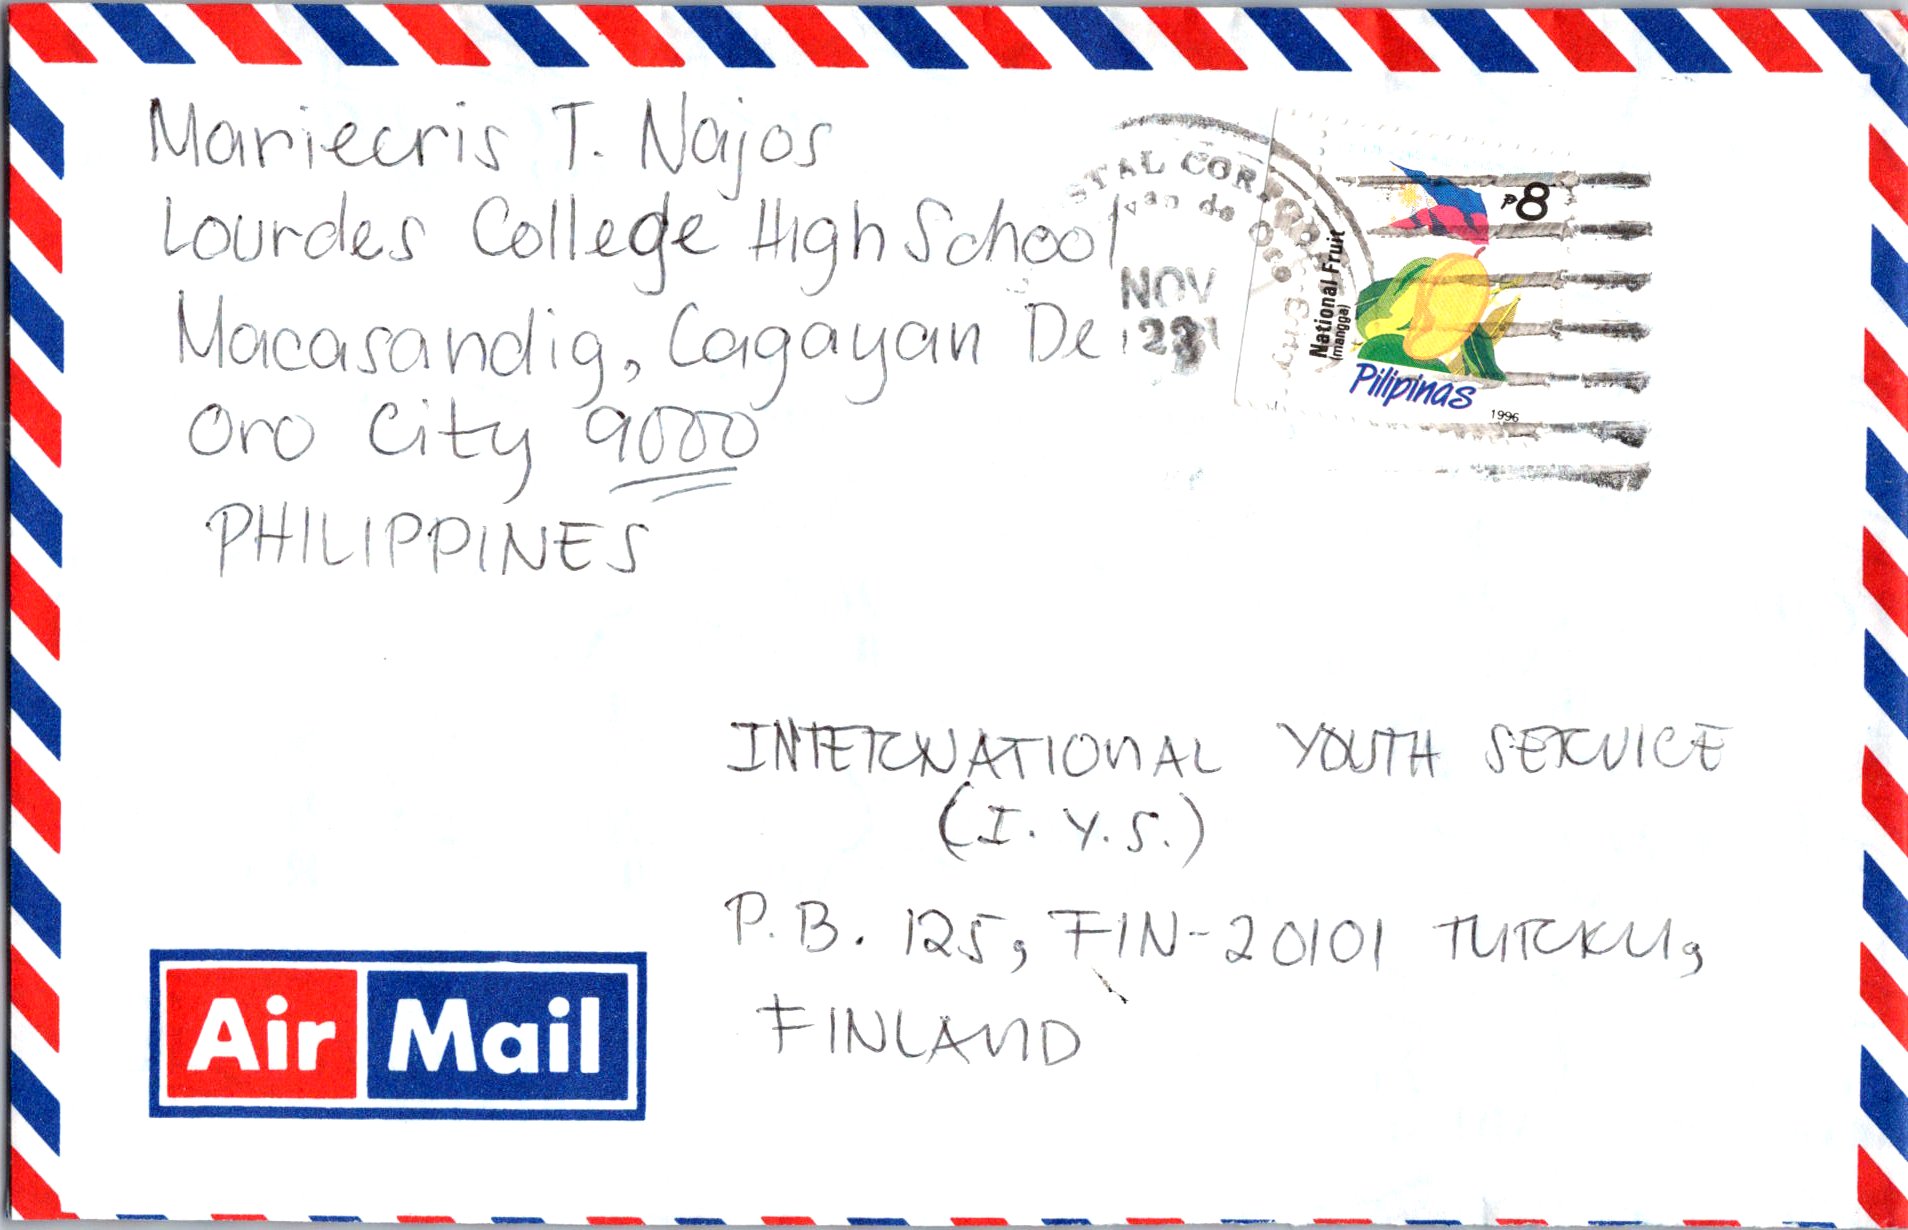 Mariecris T. Najos
Lourdes College High School
Macasandig, Cagayan De
Oro City 9000
PHILIPPINES
STAL COR
de Oro
City
NOV
P8
National Fruit
(mangga)
Pilipinas
1996
INTERNATIONAL YOUTH SERVICE
(I.Y.S.)
P.B. 125, FIN-20101 TURKU,
FINLAND
Air Mail